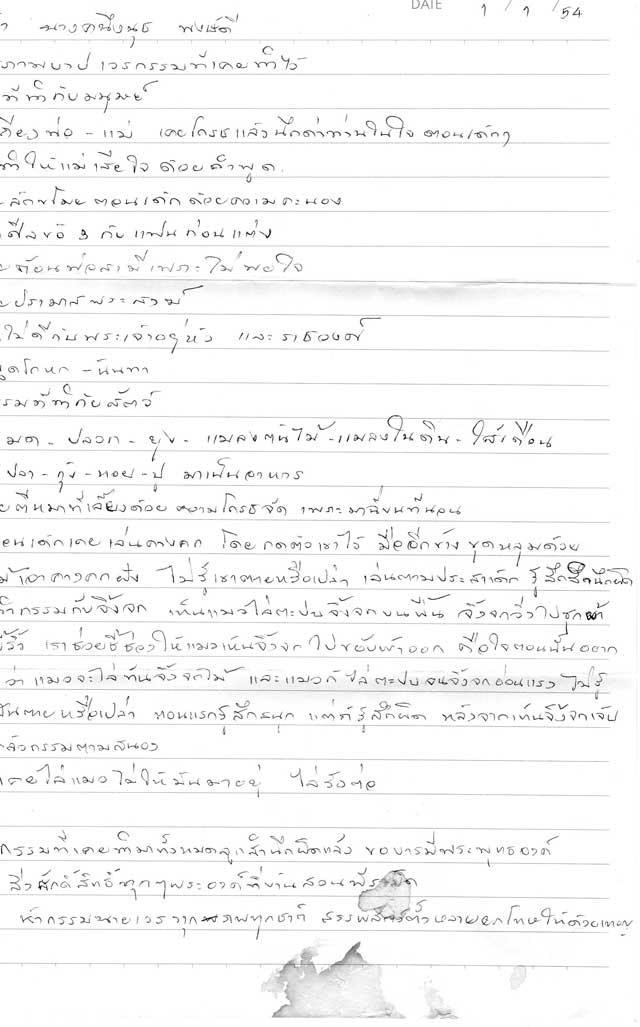 DATE 1 / 1 / 54
นางคนึงนุช พงษ์ดี
ภาพบาป เวรกรรมที่เคยทำไว้
ที่ทำกับมนุษย์
เถียงพ่อ - แม่ เคยโกรธแล้วนึกด่าท่านในใจ ตอนเด็กๆ
ทำให้แม่เสียใจ ด้วยคำพูด.
ลักขโมย ตอนเด็ก ด้วยความคะนอง
ศีลข้อ 3 กับ แฟน ก่อน แต่ง
ต้อนพ่อสามี เพราะ ไม่ พอใจ
ปรามาส พระสงฆ์
ไม่ดีกับพระเจ้าอยู่หัว และ ราชวงศ์
พูดโกหก - นินทา
กรรมที่ทำกับสัตว์
มด - ปลวก - ยุง - แมลงต้นไม้ - แมลงในดิน - ไส้เดือน
ปลา - กุ้ง - หอย - ปู มาเป็นอาหาร
ตีหมาที่เลี้ยงด้วย ความโกรธจัด เพราะ มาฉี่บนที่นอน
ตอนเด็กเคย เล่นคางคก โดย กดตัวเขาไว้ มืออีกข้าง ขุดหลุมด้วย
เอาคางคกฝัง ไม่รู้เขาตายหรือเปล่า เล่นตามประสาเด็ก รู้สึกสำนึกผิด
ทำกรรมกับจิ้งจก เห็นแมวไล่ตะปบจิ้งจกบนพื้น จิ้งจกวิ่งไปซุกผ้า
ขี้ริ้ว เราช่วยชี้ช่องให้แมวเห็นจิ้งจก ไปขยับผ้าออก คือใจตอนนั้นอยาก
ว่า แมวจะไล่ทันจิ้งจกไม้ และแมวก็ไล่ตะปบจนจิ้งจกอ่อนแรง ไม่รู้
มันตายหรือเปล่า ตอนแรกรู้สึกสนุก แต่ก็รู้สึกผิด หลังจากเห็นจิ้งจกเจ็บ
กลัวกรรมตามสนอง
เคยไล่แมวไม่ให้มันมาอยู่ ไล่รังต่อ
กรรมที่เคยทำมาทั้งหมดลูกสำนึกผิดแล้ว ขอบารมีพระพุทธองค์
สิ่งศักดิ์สิทธิ์ทุกๆพระองค์ที่
เจ้ากรรมนายเวรทุกภพทุกชาติ สรรพสัตว์ทั้งหลายยกโทษให้ด้วยเทอญ